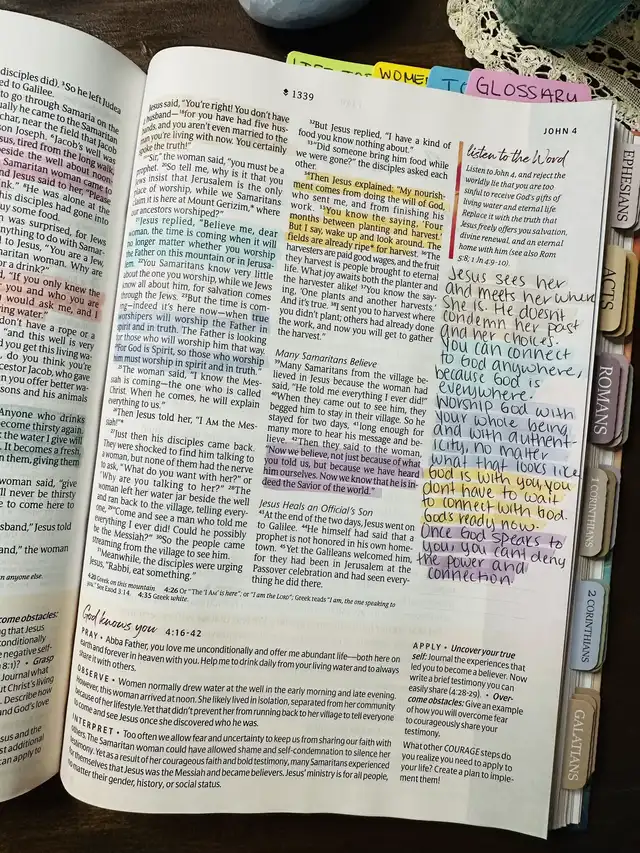 WOMEN
TO
GLOSSARY
1339
JOHN 4
disciples did). ³So he left Judea
ed to Galilee.
to go through Samaria on the
ually he came to the Samaritan
char, near the field that Jacob
son Joseph. ⁶Jacob's well was
sus, tired from the long walk,
beside the well about noon-
Samaritan woman came to
and Jesus said to her, "Please
nk." ⁸He was alone at the
his disciples had gone into
uy some food.
was surprised, for Jews
nything to do with Samar-
to Jesus, "You are a Jew
maritan woman. Why are
or a drink?"
d, "If you only knew the
you and who you are
would ask me, and I
ing water."
don't have a rope or a
"and this well is very
you get this living wa-
do you think you're
cestor Jacob, who gave
n you offer better wa-
sons and his animals
Anyone who drinks
become thirsty again.
the water I give will
It becomes a fresh,
n them, giving them
woman said, "give
ll never be thirsty
e to come here to
sband," Jesus told
and," the woman
n anyone else.
Jesus said, "You're right! You don't have
a husband—¹⁸for you have had five hus-
bands, and you aren't even married to the
man you're living with now. You certainly
spoke the truth!"
"Sir," the woman said, "you must be a
prophet. ²⁰So tell me, why is it that you
Jews insist that Jerusalem is the only
place of worship, while we Samaritans
claim it is here at Mount Gerizim,* where
our ancestors worshiped?"
²¹Jesus replied, "Believe me, dear
woman, the time is coming when it will
no longer matter whether you worship
the Father on this mountain or in Jerusa-
lem. ²²You Samaritans know very little
about the one you worship, while we Jews
know all about him, for salvation comes
through the Jews. ²³But the time is com-
ing—indeed it's here now—when true
worshipers will worship the Father in
spirit and in truth. The Father is looking
for those who will worship him that way.
²⁴For God is Spirit, so those who worship
him must worship in spirit and in truth."
²⁵The woman said, "I know the Mes-
siah is coming—the one who is called
Christ. When he comes, he will explain
everything to us."
²⁶Then Jesus told her, "I AM the Mes-
siah!"*
²⁷Just then his disciples came back.
They were shocked to find him talking to
a woman, but none of them had the nerve
to ask, "What do you want with her?" or
"Why are you talking to her?" ²⁸The
woman left her water jar beside the well
and ran back to the village, telling every-
one, ²⁹"Come and see a man who told me
everything I ever did! Could he possibly
be the Messiah?" ³⁰So the people came
streaming from the village to see him.
³¹Meanwhile, the disciples were urging
Jesus, "Rabbi, eat something."
³²But Jesus replied, "I have a kind of
food you know nothing about."
³³"Did someone bring him food while
we were gone?" the disciples asked each
other.
³⁴Then Jesus explained: "My nourish-
ment comes from doing the will of God,
who sent me, and from finishing his
work. ³⁵You know the saying, 'Four
months between planting and harvest.'
But I say, wake up and look around. The
fields are already ripe* for harvest. ³⁶The
harvesters are paid good wages, and the fruit
they harvest is people brought to eternal
life. What joy awaits both the planter and
the harvester alike! ³⁷You know the say-
ing, 'One plants and another harvests.'
And it's true. ³⁸I sent you to harvest where
you didn't plant; others had already done
the work, and now you will get to gather
the harvest."
Many Samaritans Believe
³⁹Many Samaritans from the village be-
lieved in Jesus because the woman had
said, "He told me everything I ever did!"
⁴⁰When they came out to see him, they
begged him to stay in their village. So he
stayed for two days, ⁴¹long enough for
many more to hear his message and be-
lieve. ⁴²Then they said to the woman,
"Now we believe, not just because of what
you told us, but because we have heard
him ourselves. Now we know that he is in-
deed the Savior of the world."
Jesus Heals an Official's Son
⁴³At the end of the two days, Jesus went on
to Galilee. ⁴⁴He himself had said that a
prophet is not honored in his own home-
town. ⁴⁵Yet the Galileans welcomed him,
for they had been in Jerusalem at the
Passover celebration and had seen every-
thing he did there.
4:20 Greek on this mountain. 4:26 Or "The 'I AM' is here"; or "I am the LORD"; Greek reads "I am, the one speaking to
you." See Exod 3:14. 4:35 Greek white.
listen to the Word
Listen to John 4, and reject the
worldly lie that you are too
sinful to receive God's gifts of
living water and eternal life.
Replace it with the truth that
Jesus freely offers you salvation,
divine renewal, and an eternal
home with him (see also Rom
5:8; 1 Jn 4:9-10).
Jesus sees her
and meets her where
she is. He doesnt
condemn her past
and her choices.
You can connect
to God anywhere,
because God is
everywhere.
Worship God with
your whole being
and with authent-
icity, no matter
what that looks like
God is with you, you
dont have to wait
to connect with God.
Gods ready now.
Once God speaks to
you, you cant deny
the power and
connection.
EPHESIANS
ACTS
ROMANS
1 CORINTHIANS
2 CORINTHIANS
GALATIANS
God knows you 4:16-42
PRAY • Abba Father, you love me unconditionally and offer me abundant life—both here on
earth and forever in heaven with you. Help me to drink daily from your living water and to always
share it with others.
OBSERVE • Women normally drew water at the well in the early morning and late evening.
However, this woman arrived at noon. She likely lived in isolation, separated from her community
because of her lifestyle. Yet that didn't prevent her from running back to her village to tell everyone
to come and see Jesus once she discovered who he was.
INTERPRET • Too often we allow fear and uncertainty to keep us from sharing our faith with
others. The Samaritan woman could have allowed shame and self-condemnation to silence her
testimony. Yet as a result of her courageous faith and bold testimony, many Samaritans experienced
for themselves that Jesus was the Messiah and became believers. Jesus' ministry is for all people,
no matter their gender, history, or social status.
APPLY • Uncover your true
self: Journal the experiences that
led you to become a believer. Now
write a brief testimony you can
easily share (4:28-29). • Over-
come obstacles: Give an example
of how you will overcome fear
to courageously share your
testimony.
What other COURAGE steps do
you realize you need to apply to
your life? Create a plan to imple-
ment them!
come obstacles:
ng that Jesus
conditionally
e negative self-
8:1)? • Grasp
Journal what
ut Christ's living
Describe how
and God's love
sus and the
st additional
can apply to